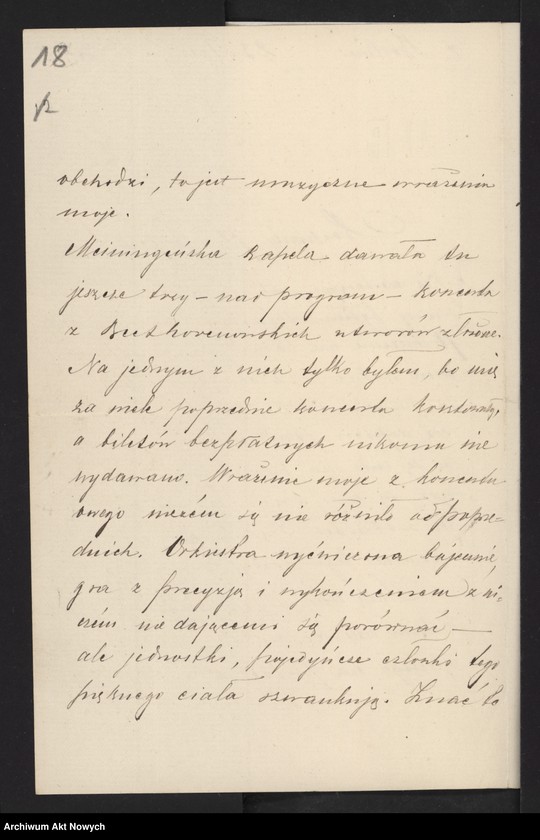 18
obchodzi, to jest muzyczne wrażenia
moje.
Meiningeńska kapela dawała tu
jeszcze trzy – nad program – koncerta
z Beethovenowskich utworów złożone.
Na jednym z nich tylko byłem, bo mię
za wiele poprzednie koncerta kosztowały,
a biletów bezpłatnych nikomu nie
wydawano. Wrażenie moje z koncertu
owego niczém się nie różniło od poprze-
dnich. Orkiestra wyćwiczona bajecznie,
gra z precyzją i wykończeniem z ni-
czém nie dającemi się porównać –
ale jednostki, pojedyńcze członki tego
pięknego ciała szwankują. Znać to
Archiwum Akt Nowych